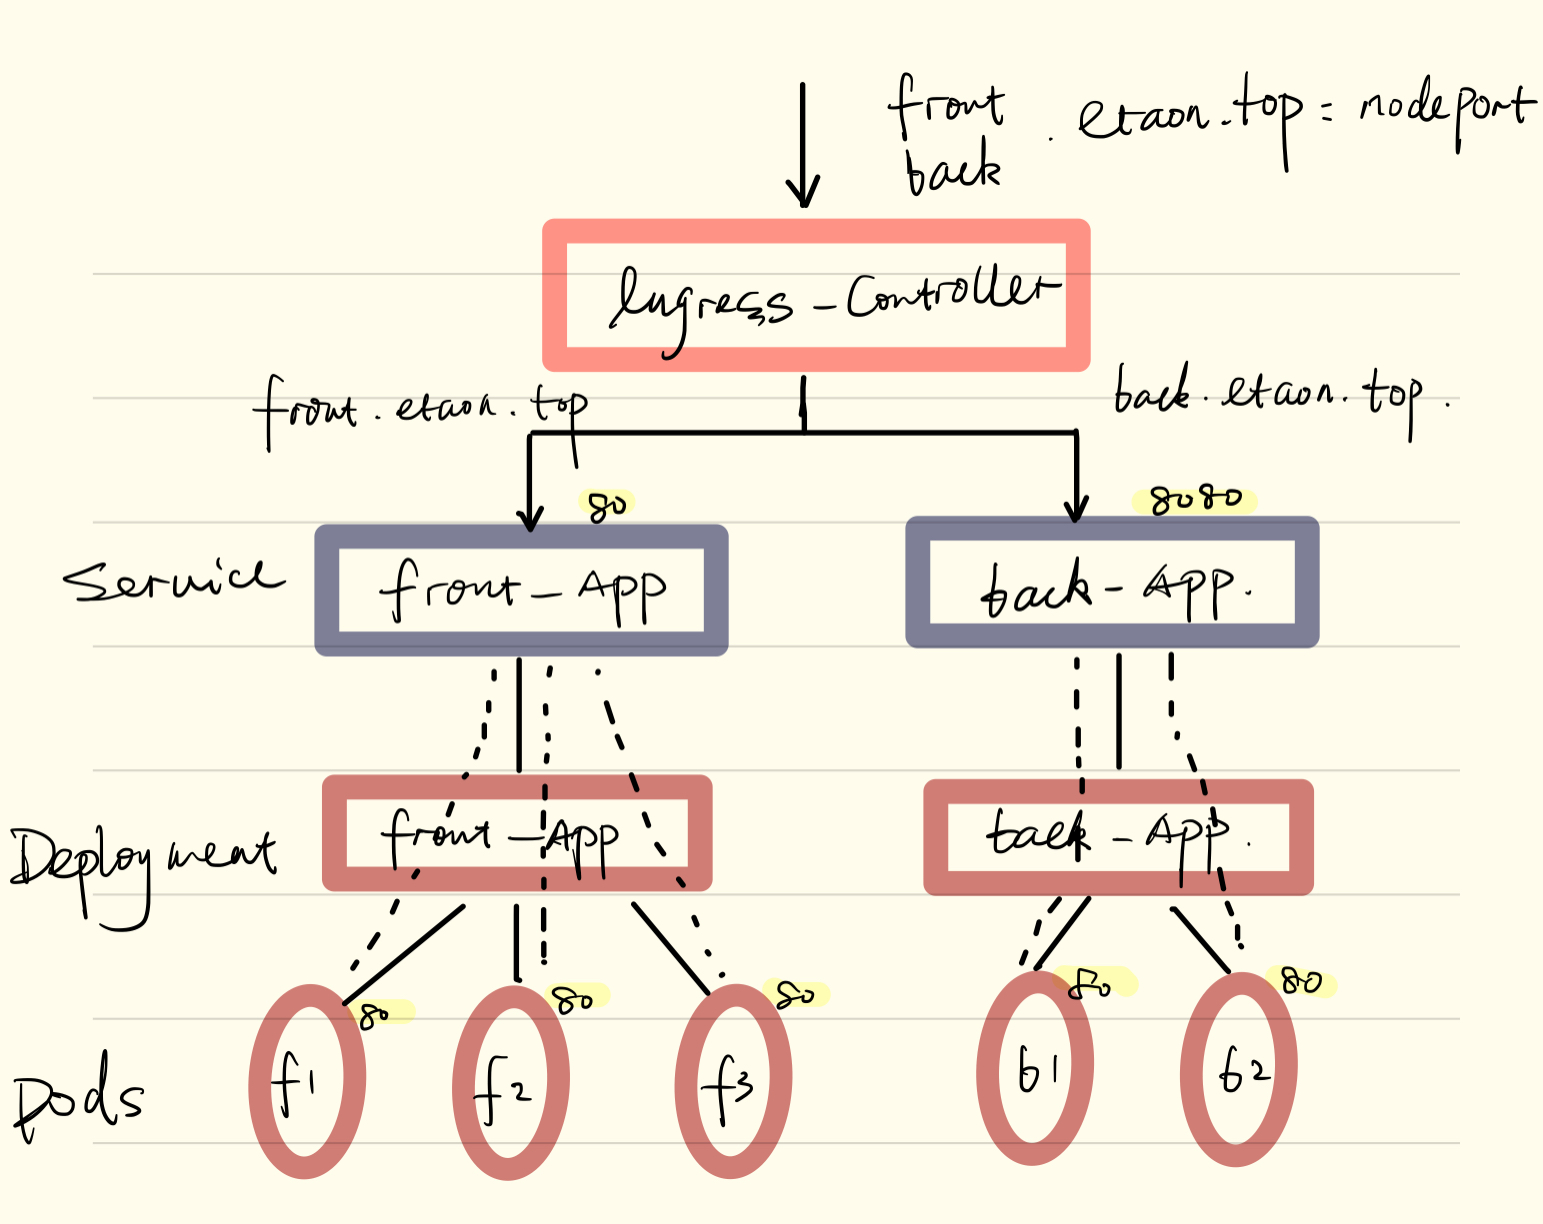 front
back
. etaon.top : nodeport
Ingress-Controller
front.etaon.top
back.etaon.top.
80
8080
Service
front-App
back-App.
Deployment
front-App
back-App.
80
80
80
80
80
Pods
f1
f2
f3
b1
b2